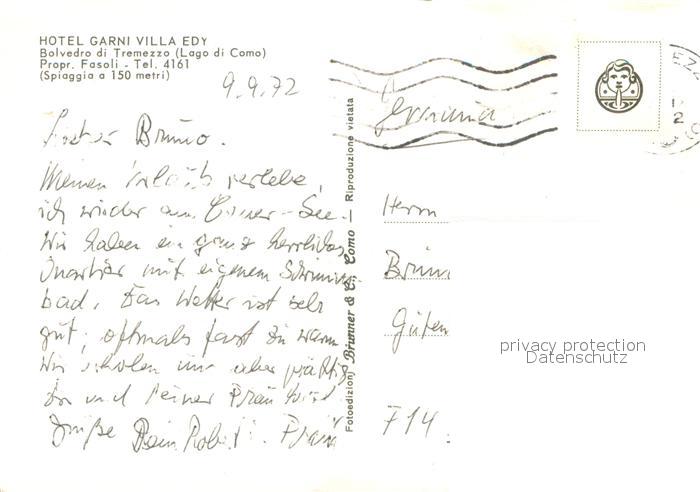 HOTEL GARNI VILLA EDY
Bolvedro di Tremezzo (Lago di Como)
Propr. Fasoli - Tel. 4161
(Spiaggia a 150 metri)
9.9.72
Lieber Bruno.
Meinen Urlaub verlebe
ich wieder am Comer-See.
Wir haben ein ganz herrliches
Quartier mit eigenem Schwimm
bad. Das Wetter ist sehr
gut, oftmals fast zu warm.
Wir erholen uns aber prächtig
Dir und Deiner Frau
Grüße Dein Robert. Frau
Fotoedizioni Brunner & C. Como - Riproduzione vietata
Germania
Herrn
Bruno
F14
privacy protection
Datenschutz